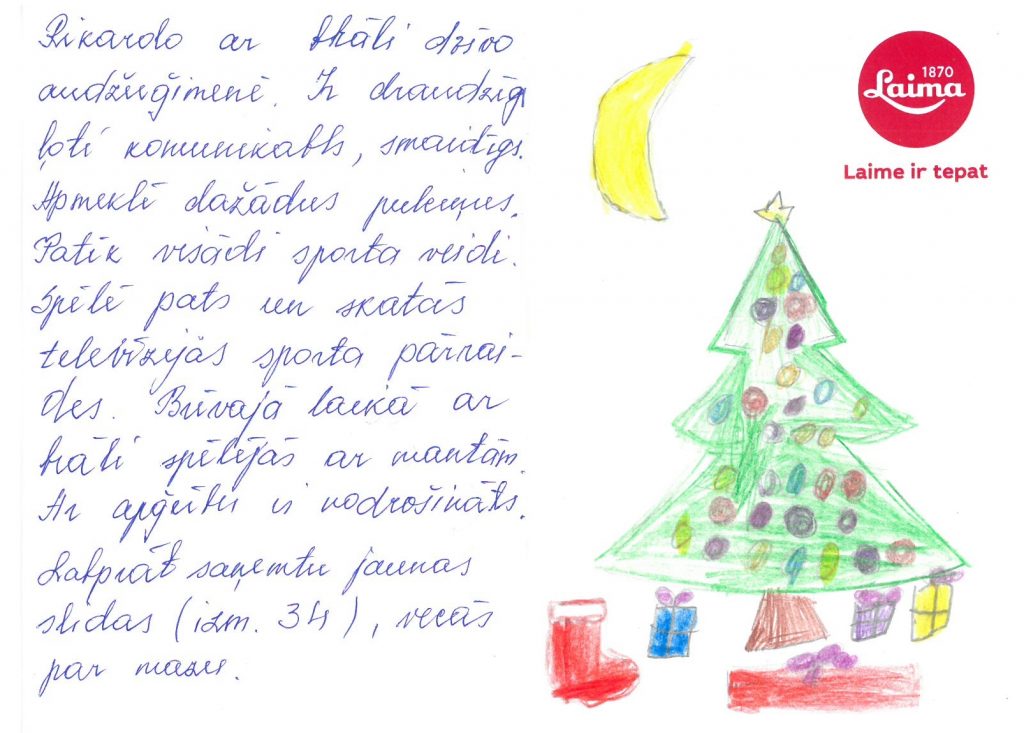 Rikardo ar brāli dzīvo
audžuģimenē. Ir draudzīgs
ļoti komunikabls, smaidīgs.
Apmeklē dažādus pulciņus.
Patīk visādi sporta veidi.
Spēlē pats un skatās
televīzijās sporta pārrai-
des. Brīvajā laikā ar
brāli spēlējās ar mantām.
Ar apģērbu ir nodrošināts.
Labprāt saņemtu jaunas
slidas (izm. 34), vecās
par mazu.
1870
Laima
Laime ir tepat